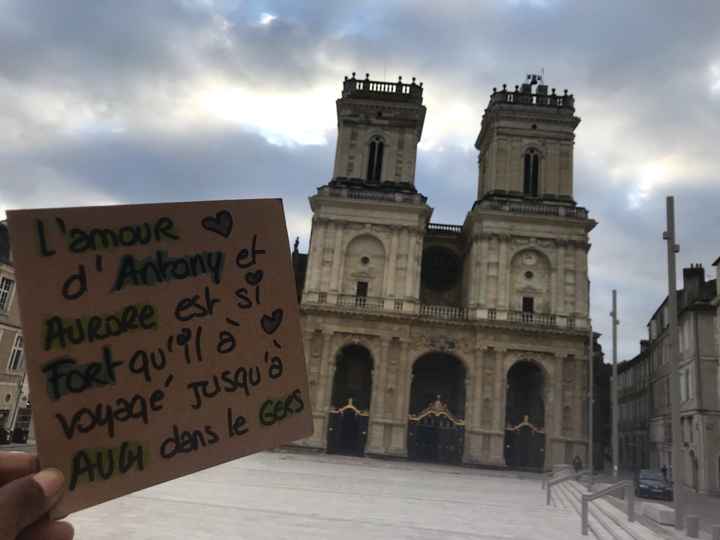 L'amour
d'Antony et
AURORE est si
Fort qu'il à
voyagé jusqu'à
AUCH dans le GERS